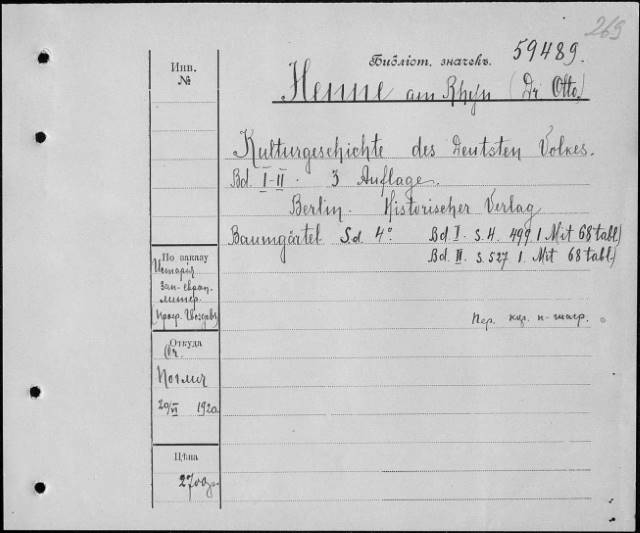 269
Библіот. значекъ. 59489.
Инв.
№
Henne am Rhyn (Dr. Otto)
Kulturgeschichte des Deutsten Volkes.
Bd. I-II. 3 Auflage.
Berlin. Historischer Verlag
Baumgärtel S.d. 4° Bd. I. S.4. 499 1. Mit 68 tabl.)
Bd. II. S. 527 1. Mit 68 tabl.)
По заказу
Исторія
зап-европ.
литер.
Пер. кцл. н-шагр.
Откуда
От
20/VI 1920
Цѣна